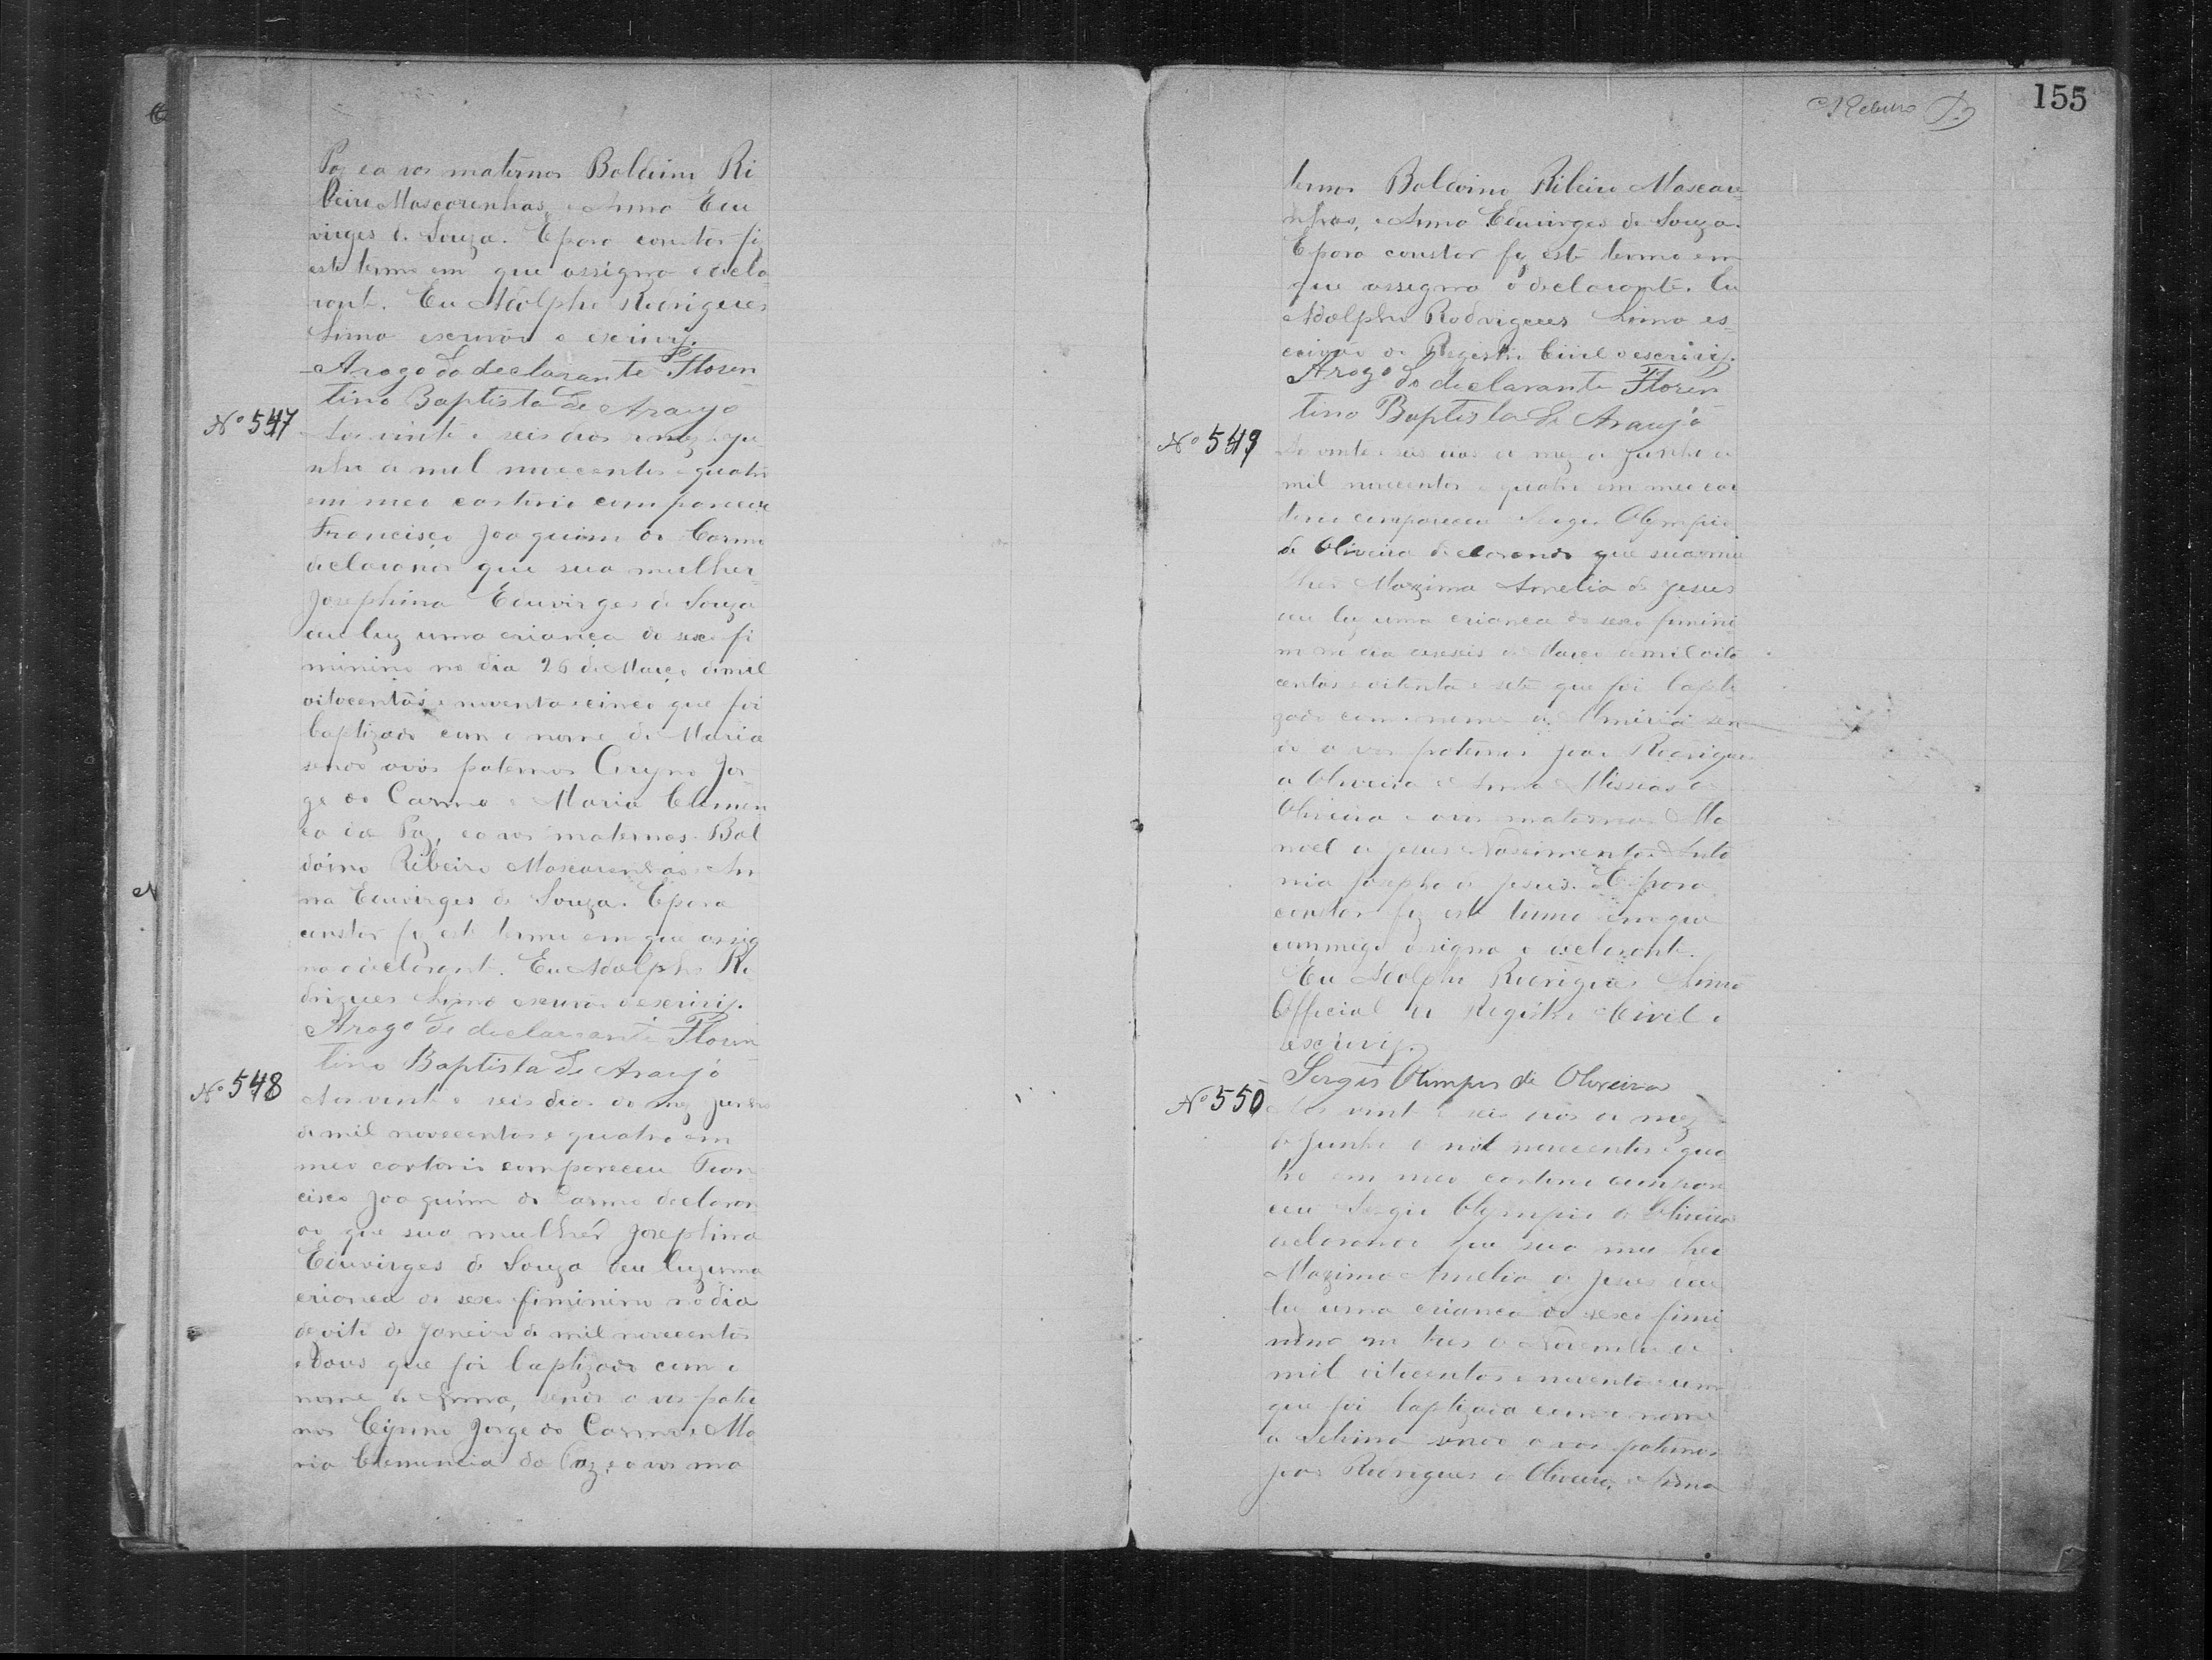 Paz e avos maternos Baldoino Ri
beiro Mascarenhas, e Anna Edu
virges de Souza. E para constar fiz
este termo em que assigna o decla
rante. Eu Adolpho Rodrigues
Lima escrivão o escrivy.
Arogo do declarante Floren
tino Baptista de Araujo
Nº 547
Aos vinte e seis dias do mez de ju
nho de mil novecentos e quatro
em meu cartorio compareceu
Francisco Joaquim do Carmo
declarando que sua mulher
Josephina Eduvirges de Souza
deu luz uma criança do sexo fi
minino no dia 26 de Março de mil
oitocentos e noventa e cinco que foi
baptizado com o nome de Maria
sendo avós paternos Cyryno Jor
ge do Carmo e Maria Clemen
cia da Paz, e avos maternos Bal
doino Ribeiro Mascarenhas e An
na Eduvirges de Souza. E para
constar fiz este termo em que assig
na o declarante. Eu Adolpho Ro
drigues Lima escrivão o escrivy.
Arogo de declarante Floren
tino Baptista de Araujo
Nº 548
Aos vinte e seis dias do mez Junho
de mil novecentos e quatro em
meu cartorio compareceu Fran
cisco Joaquim do Carmo declaran
do que sua mulher Josephina
Eduvirges de Souza deu luz uma
criança do sexo fiminino no dia
dezoito de Janeiro de mil novecentos
e dous que foi baptizado com o
nome de Anna, sendo avos pater
nos Cyrino Jorge do Carmo e Ma
ria Clemencia da Paz, e avos ma
Ribeiro
155
ternos Baldoino Ribeiro Mascare
nhas, e Anna Eduvirges de Souza.
E para constar fiz este termo em
que assigna o declarante. Eu
Adolpho Rodrigues Lima es
crivão do Registro Civil o escrivy.
Arogo do declarante Floren
tino Baptista de Araujo
Nº 549
Aos vinte e seis dias do mez de Junho de
mil novecentos e quatro em meu car
torio compareceu Sergio Olympio
de Oliveira declarando que sua mu
lher Maxima Amelia de Jesus
deu luz uma criança do sexo fimini
no no dia deseseis de Março de mil oito
centos e oitenta e sete que foi bapti
zado com o nome de Almiria sen
do avos paternos João Rodrigues
de Oliveira e Anna Messias de
Oliveira e avos maternos Ma
noel de Jesus Nascimento e Anto
nia Josepha de Jesus. E para
constar fiz este termo em que
commigo assigna o declarante.
Eu Adolpho Rodrigues Lima
Official do Registro Civil o
escrivy.
Sergio Olimpio de Oliveira
Nº 550
Aos vinte e seis dias do mez
de Junho de mil novecentos e qua
tro em meu cartorio compare
ceu Sergio Olympio de Oliveira
declarando que sua mulher
Maxima Amelia de Jesus deu
luz uma criança do sexo fimi
nino no tres de Novembro de
mil oitocentos e noventa e um
que foi baptizada com o nome
de sendo avos paternos
João Rodrigues de Oliveira, e Anna